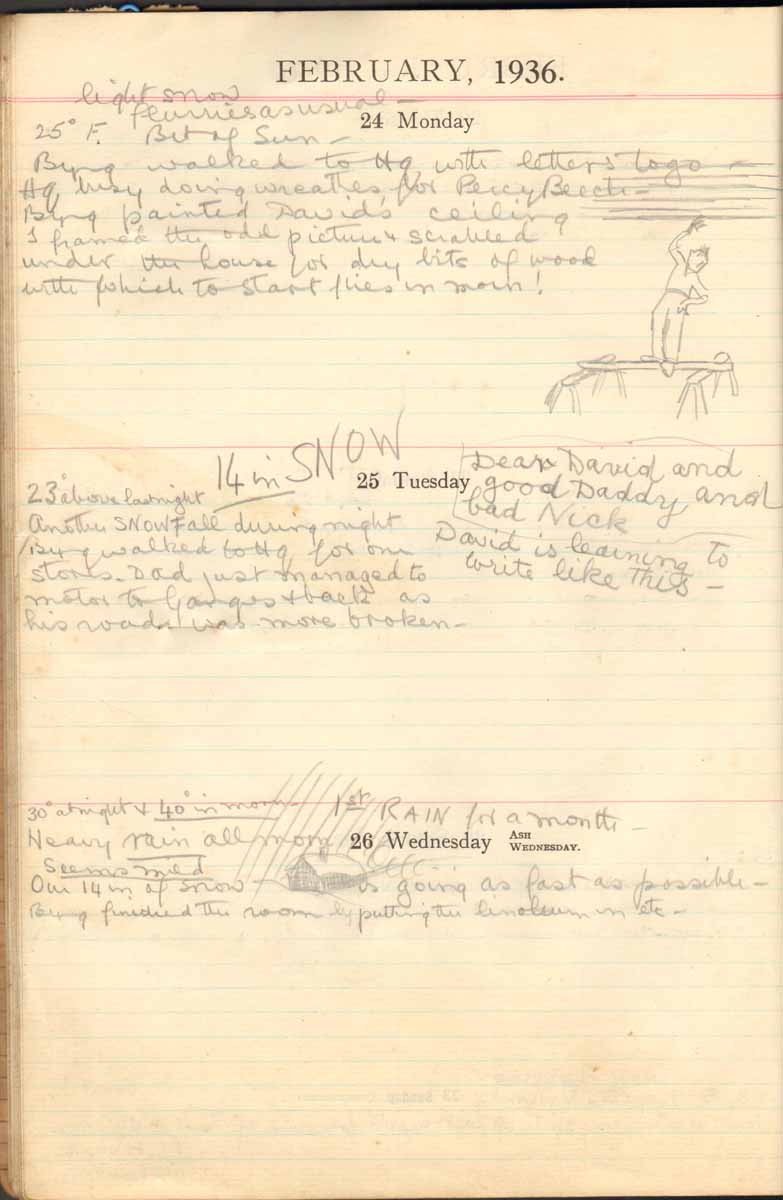 FEBRUARY, 1936.
light snow
flurries as usual –
24 Monday
25° F. Bit of Sun –
Byng walked to Hq with letters to go –
Hq busy doing wreathes for Percy Beech –
Byng painted David's ceiling
I framed the odd picture & scrabbled
under the house for dry bits of wood
with which to start fires in morn!
14 in SNOW
25 Tuesday
23° above last night
Another SNOWFall during night
Byng walked to Hq for our
stores. Dad just managed to
motor to Ganges & back as
his road was more broken –
Dear David and
good Daddy and
bad Nick
David is learning to
write like this –
30° at night & 40° in morn – 1st RAIN for a month –
Heavy rain all morn
26 Wednesday
ASH
WEDNESDAY.
Seems mild
Our 14 in of snow – is going as fast as possible –
Byng finished the room by putting the linoleum in etc –
23 Sunday